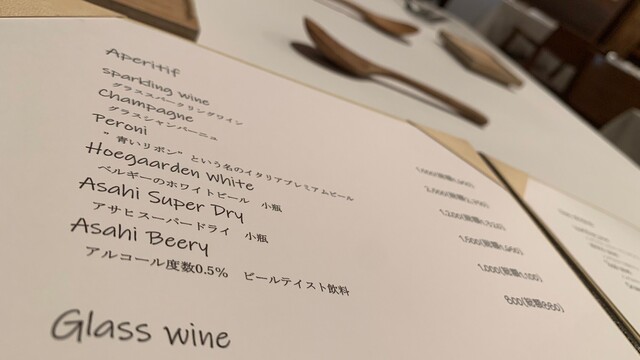 Aperitif
sparkling wine
グラススパークリングワイン 1,000(税額1,100)
Champagne
グラスシャンパーニュ 2,000(税額2,200)
Peroni
"青いリボン"という名のイタリアプレミアムビール 1,200(税額1,320)
Hoegaarden White
ベルギーのホワイトビール 小瓶
Asahi Super Dry
アサヒスーパードライ 小瓶 1,000(税額1,100)
Asahi Beery
アルコール度数0.5% ビールテイスト飲料 800(税額880)
Glass wine